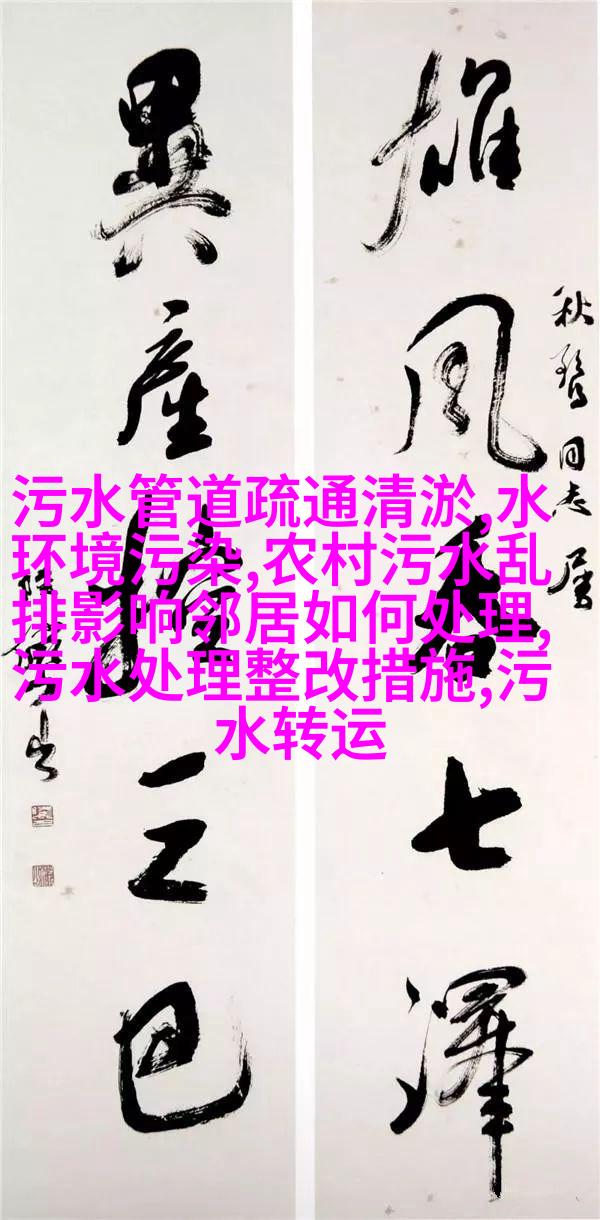 雄风七澤
秋同志属
異產三巴
污水管道疏通清淤,水
环境污染,农村污水乱
排影响邻居如何处理,
污水处理整改措施,污
水转运